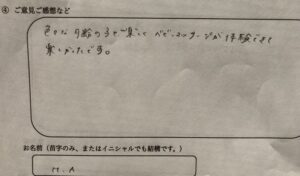 ④ ご意見ご感想など
色々な月齢の子とご一緒にベビーマッサージが体験できて
楽しかったです。
お名前（苗字のみ、またはイニシャルでも結構です。）
M.A